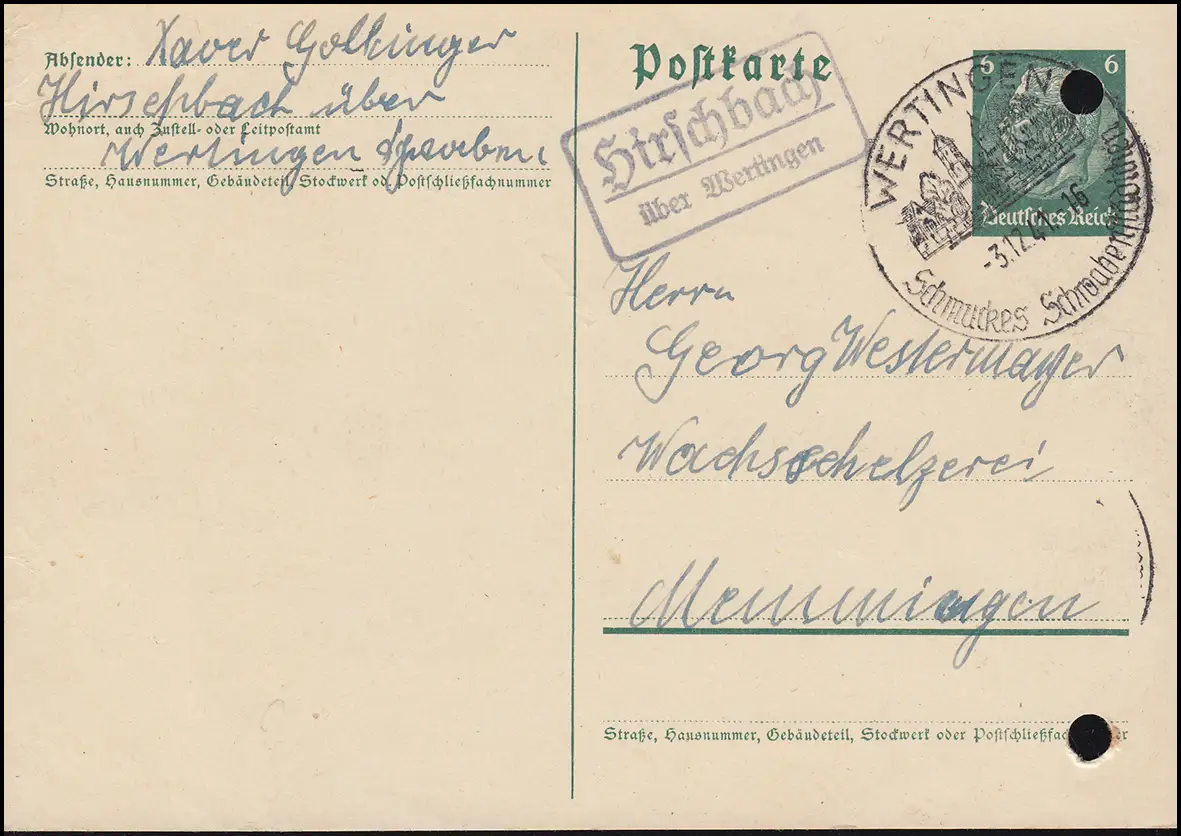 Absender: Xaver Gollinger
Hirschbach über
Wohnort, auch Zustell- oder Leitpostamt
Wertingen Schwaben
Straße, Hausnummer, Gebäudeteil, Stockwerk od. Postschließfachnummer
Postkarte
Hirschbach
über Wertingen
6 6
Deutsches Reich
WERTINGEN
-3.12.41.-16
Schmuckes Schwabenstädtchen
Herrn
Georg Westermayer
Wachsschelzerei
Memmingen
Straße, Hausnummer, Gebäudeteil, Stockwerk oder Postschließfac er